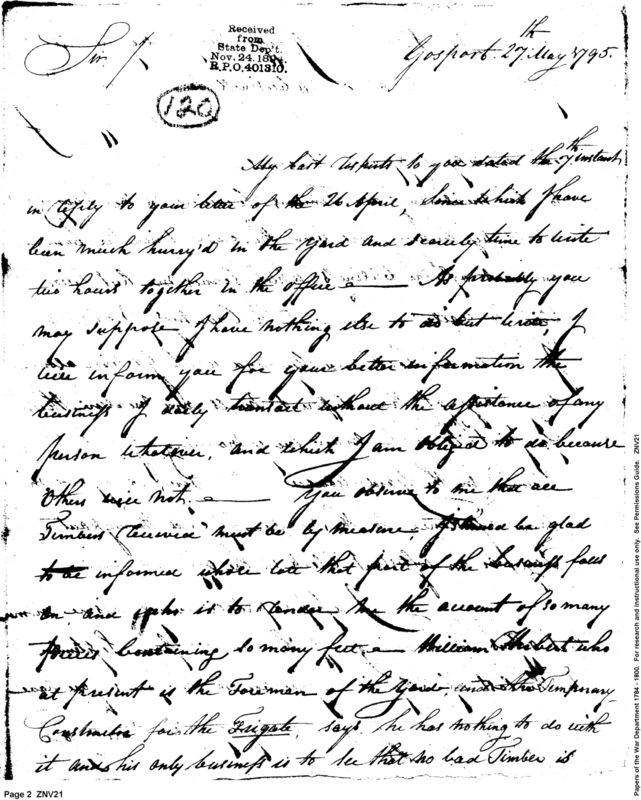 Received
from
State Dep't.
Nov. 24. 189
R.P.O. 401310.
Sir /
Gosport. 27th May 1795.
120
My last respects to you dated the 7th instant
in reply to your letter of the 26 April, Since which I have
been much hurry'd in the Yard and scarcely time to write
two hours together in the office — As probably you
may suppose I have nothing else to do but write, I
will inform you for your better information the
business I daily transact without the assistance of any
person whatever, and which I am obliged to do because
others will not — You observe to me that all
Timbers received must be by measure, I should be glad
to be informed whose lott that part of the business falls
on and who is to render me the account of so many
pieces containing so many feet — William who
at present is the Foreman of the Yard and Temporary
Constructor for the Frigate, says he has nothing to do with
it and his only business is to see that no bad Timber is
Page 2 ZNV21
Papers of the War Department 1784 - 1800. For research and instructional use only. See Permissions Guide. ZNV21